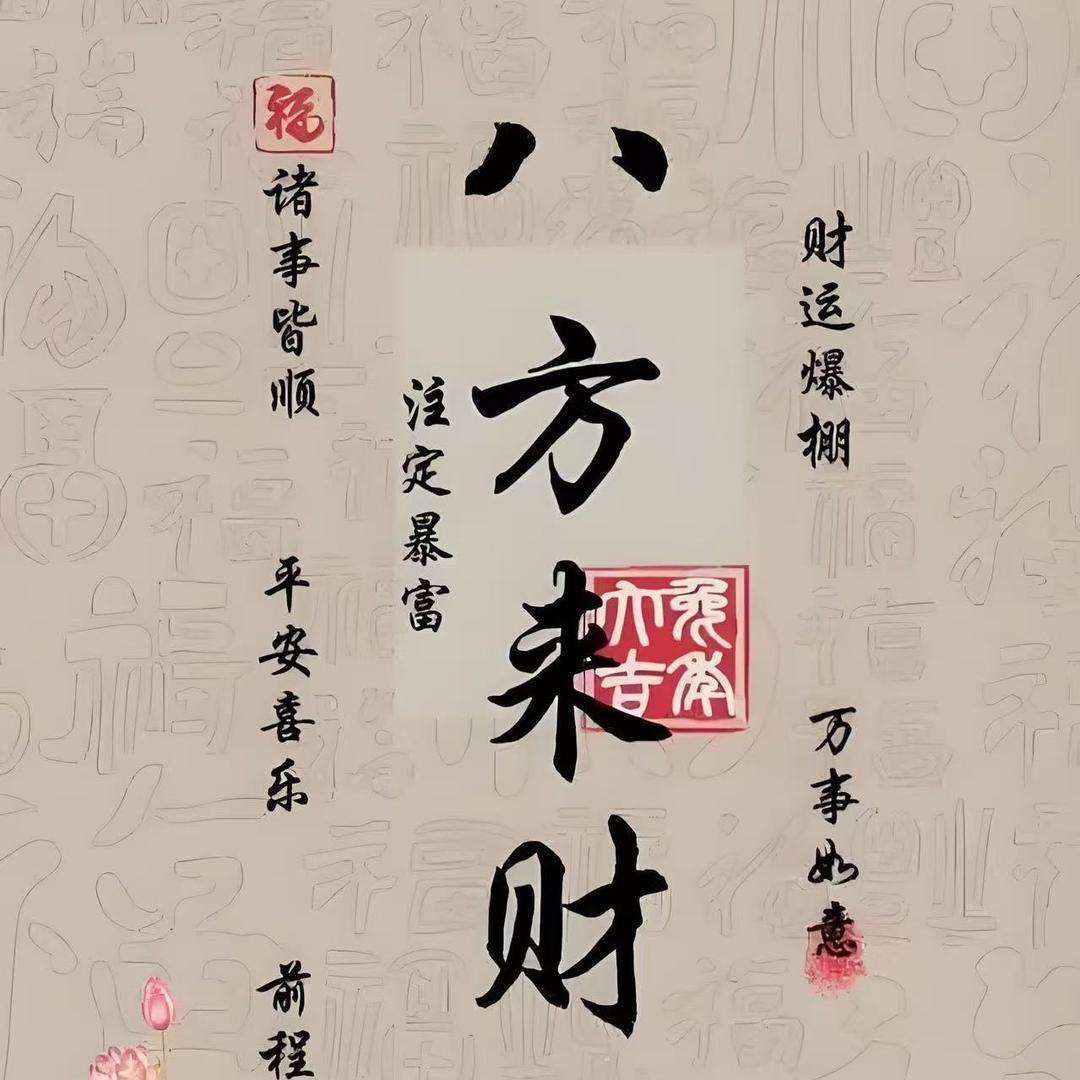 财运爆棚
万事如意
八方来财
兔年大吉
注定暴富
福
诸事皆顺
平安喜乐
前程